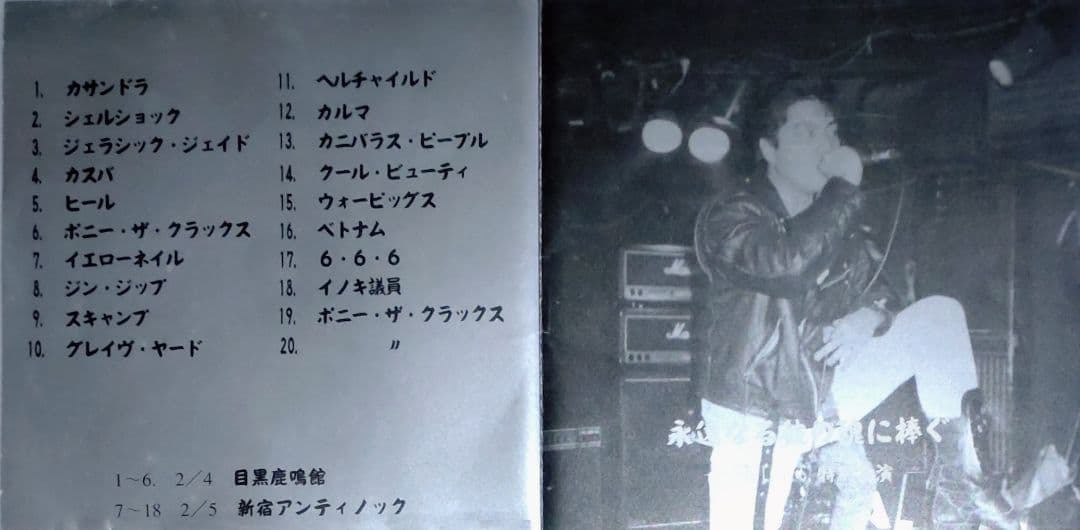 1. カサンドラ
2. シェルショック
3. ジェラシック・ジェイド
4. カスバ
5. ヒール
6. ポニー・ザ・クラックス
7. イエローネイル
8. ジン・ジップ
9. スキャンプ
10. グレイヴ・ヤード
11. ヘルチャイルド
12. カルマ
13. カニバラス・ピープル
14. クール・ビューティ
15. ウォーピッグス
16. ベトナム
17. 6・6・6
18. イノキ議員
19. ポニー・ザ・クラックス
20. 〃
1～6. 2/4 目黒鹿鳴館
7～18 2/5 新宿アンティノック
に捧ぐ